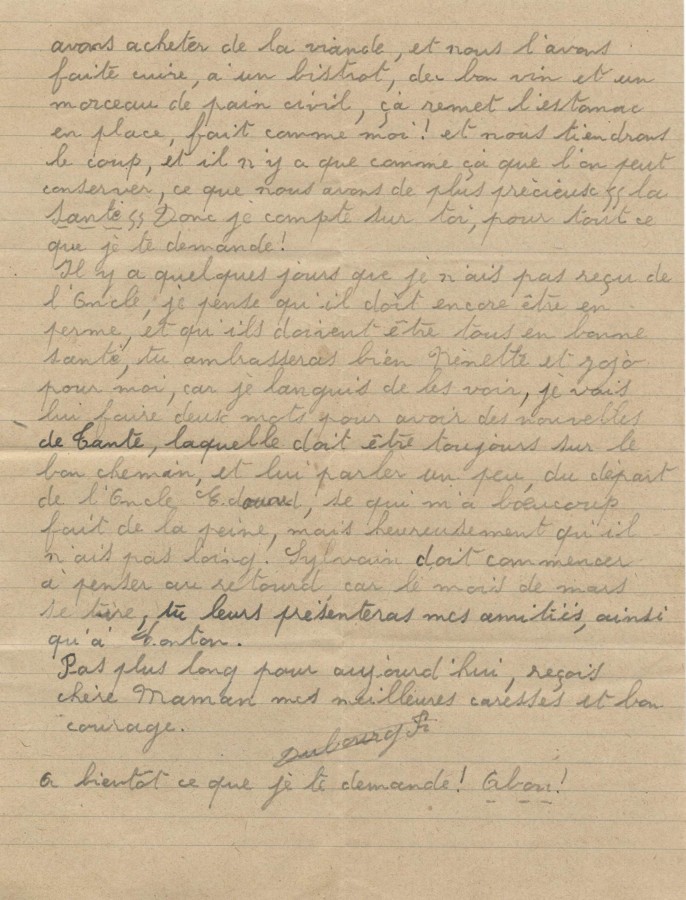 avons acheter de la viande, et nous l'avons
faite cuire, a un bistrot, du bon vin et un
morceau de pain civil, çà remet l'estomac
en place, fait comme moi! et nous tiendrons
le coup, et il n'y a que comme çà que l'on peut
conserver, ce que nous avons de plus prècieux "la
santè" Donc je compte sur toi, pour tout ce
que je te demande!
Il y a quelques jours que je n'ais pas reçu de
l'Oncle, je pense qu'il doit encore être en
perme, et qu'ils doivent être tous en bonne
santè, tu ambrasseras bien Nènette et zozo
pour moi, car je languis de les voir, je vais
lui faire deux mots pour avoir des nouvelles
de Tante, laquelle doit être toujours sur le
bon chemin, et lui parler un peu, du dèpart
de l'Oncle Edouard, se qui m'à bœucoup
fait de la peine, mais heureusement qu'il
n'ais pas loing! Sylvain doit commencer
à penser au retourd, car le mois de mars
se tire, tu leurs prèsenteras mes amitiès, ainsi
qu'à Tonton.
Pas plus long pour aujourd'hui, reçois
chère Maman mes meilleures caresses et bon
courage.
Dubourg
a bientôt ce que je te demande! Abon!